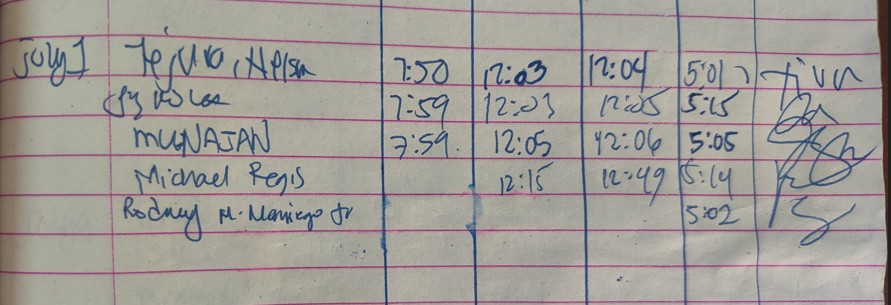 July 1 Tejuro, Nelson 7:50 12:03 12:04 5:01
7:59 12:03 12:05 5:15
MUNAJAN 7:59 12:05 12:06 5:05
Michael Regis 12:15 12:49 5:14
Rodney M. Maniego Jr 5:02